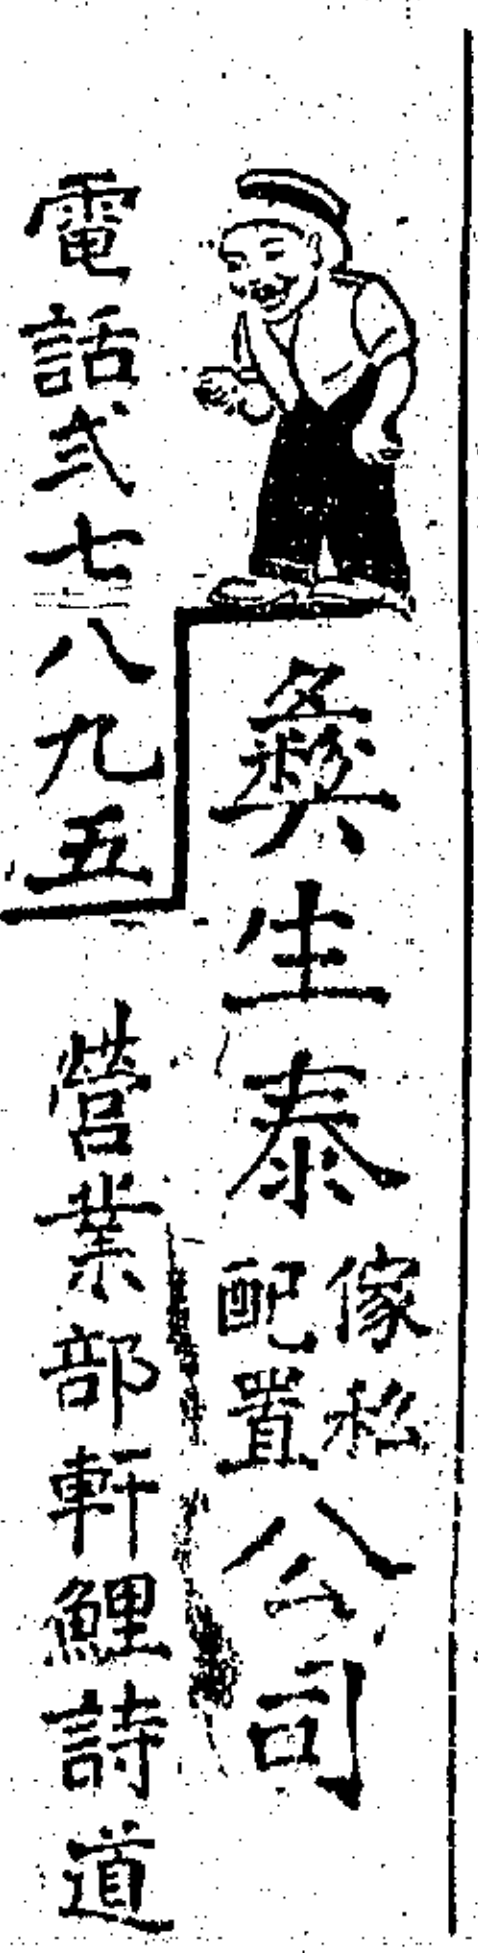 彝生泰傢私配置公司
電話弍七八九五
營業部軒鯉詩道